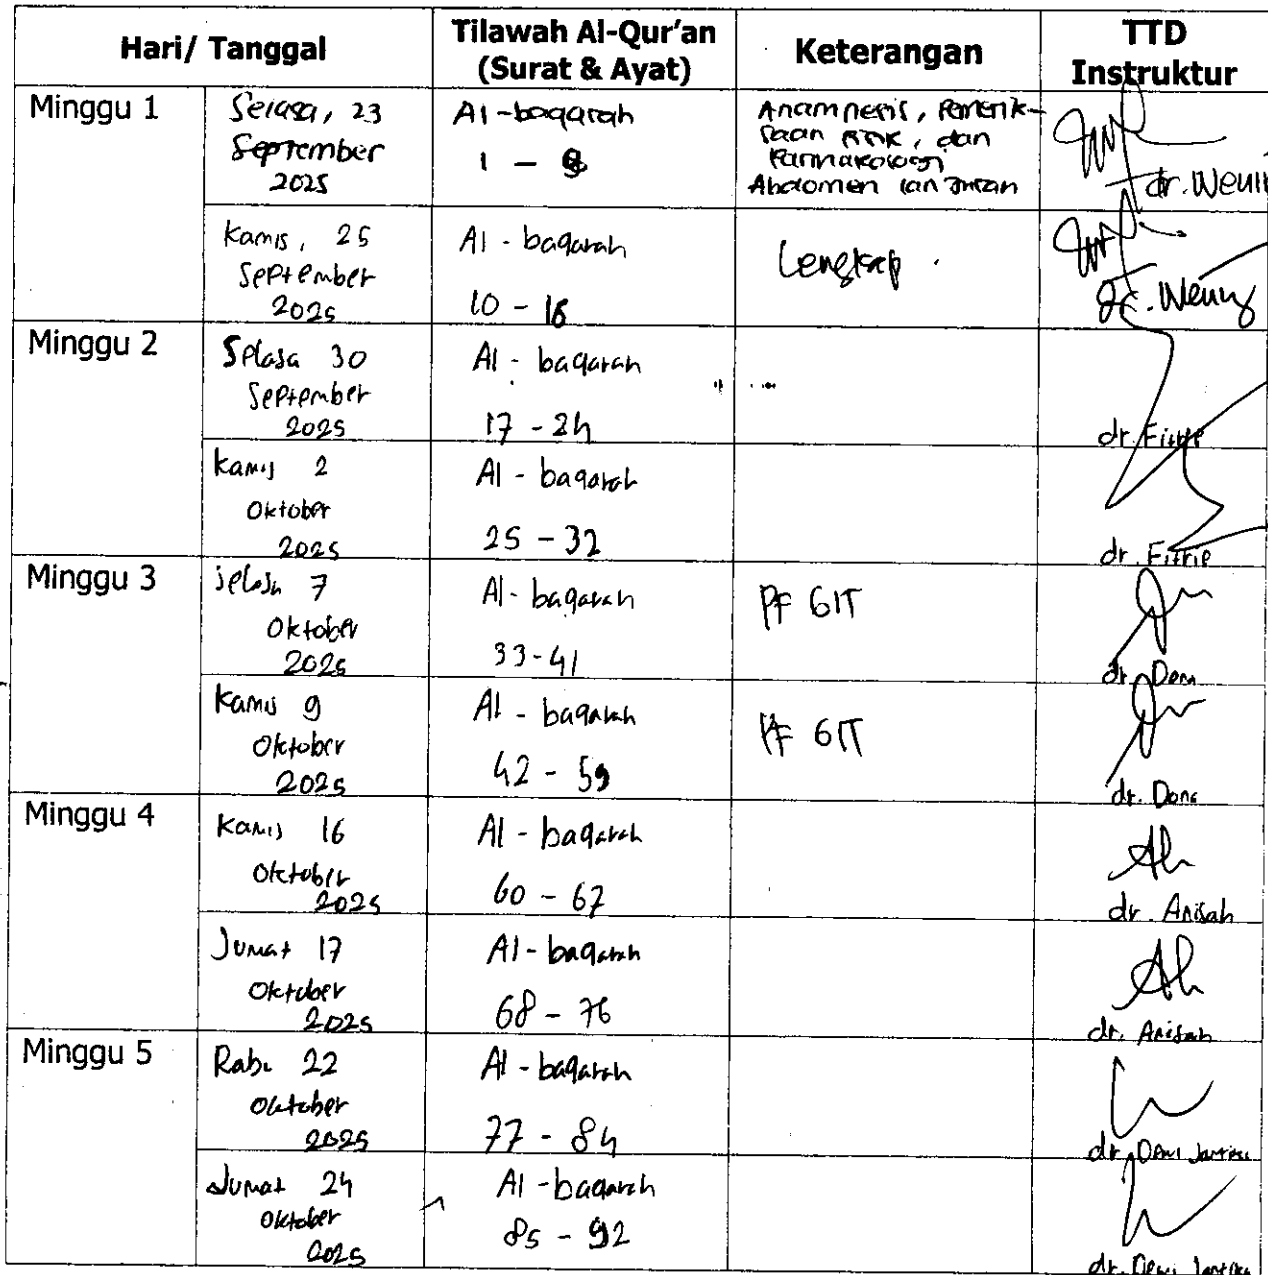 Hari/ Tanggal
Tilawah Al-Qur'an
(Surat & Ayat)
Keterangan
TTD
Instruktur
Minggu 1
Selasa, 23
September
2025
Al-baqarah
1 - 9
Anamnesis, Pemerik-
saan Fisik, dan
Farmakologi
Abdomen lanjutan
dr. Wenin
Kamis, 25
September
2025
Al - baqarah
10 - 16
Lengkap
dr. Wening
Minggu 2
Selasa 30
September
2025
Al - baqarah
17 - 24
dr. Fitrie
Kamis 2
Oktober
2025
Al - baqarah
25 - 32
dr. Fitrie
Minggu 3
Selasa 7
Oktober
2025
Al - baqarah
33-41
PF GIT
dr.
Kamis 9
Oktober
2025
Al - baqarah
42 - 59
PF GIT
dr.
Minggu 4
Kamis 16
Oktober
2025
Al - baqarah
60 - 67
dr. Anisah
Jumat 17
Oktober
2025
Al - baqarah
68 - 76
dr. Anisah
Minggu 5
Rabu 22
Oktober
2025
Al - baqarah
77 - 84
dr. Dewi
Jumat 24
Oktober
2025
Al - baqarah
85 - 92
dr. Dewi